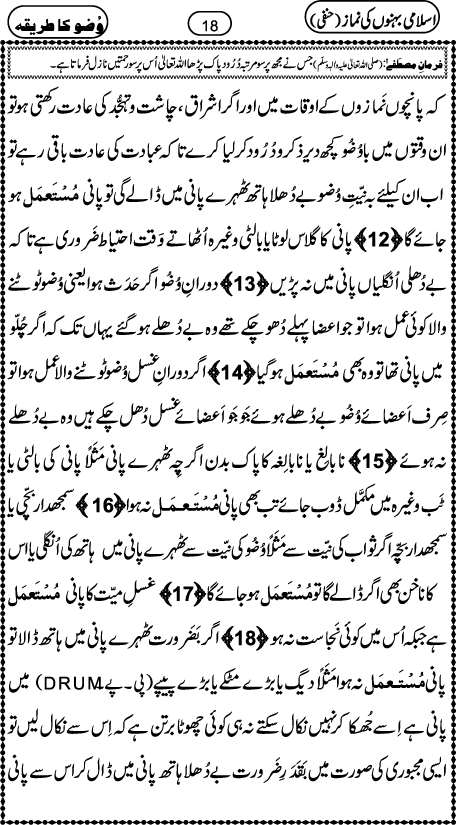 اسلامی بہنوں کی نماز (حنفی)
18
وُضو کا طریقہ
فرمانِ مصطفےٰ: (صلی اللہ تعالیٰ علیہ والہ وسلم) جس نے مجھ پر سو مرتبہ دُرودِ پاک پڑھا اللہ تعالیٰ اُس پر سو رحمتیں نازل فرماتا ہے۔
کہ پانچوں نَمازوں کے اوقات میں اور اگر اشراق، چاشت و تہجُّد کی عادت رکھتی ہو تو
ان وقتوں میں باوُضو کچھ دیر ذکر و دُرُود کر لیا کرے تا کہ عبادت کی عادت باقی رہے تو
اب ان کیلئے بہ نیّتِ وُضو بے دُھلا ہاتھ ٹھہرے پانی میں ڈالے گی تو پانی مُسْتَعمَل ہو
جائے گا ﴿12﴾ پانی کا گلاس لوٹا یا بالٹی وغیرہ اُٹھاتے وَقت احتیاط ضَروری ہے تا کہ
بے دُھلی اُنگلیاں پانی میں نہ پڑیں ﴿13﴾ دورانِ وُضُو اگر حَدَث ہوا یعنی وُضو ٹوٹنے
والا کوئی عمل ہوا تو جو اعضا پہلے دُھو چکے تھے وہ بے دُھلے ہو گئے یہاں تک کہ اگر چُلّو
میں پانی تھا تو وہ بھی مُسْتَعمَل ہو گیا ﴿14﴾ اگر دورانِ غسل وُضو ٹوٹنے والا عمل ہوا تو
صِرف اَعضائے وُضو بے دُھلے ہوئے جَو جَو اَعضائے غسل دُھل چکے ہیں وہ بے دُھلے
نہ ہوئے ﴿15﴾ نابالِغ یا نابالِغہ کا پاک بدن اگرچِہ ٹھہرے پانی مَثَلاً پانی کی بالٹی یا
ٹب وغیرہ میں مکمَّل ڈوب جائے تب بھی پانی مُسْتَعمَل نہ ہوا ﴿16﴾ سمجھدار بچّی یا
سمجھدار بچّہ اگر ثواب کی نیّت سے مَثَلاً وُضُو کی نیّت سے ٹھہرے پانی میں ہاتھ کی اُنگلی یا اس
کا ناخن بھی اگر ڈالے گا تو مُسْتَعمَل ہو جائے گا ﴿17﴾ غسلِ میِّت کا پانی مُسْتَعمَل
ہے جبکہ اُس میں کوئی نَجاست نہ ہو ﴿18﴾ اگر بَضَرورت ٹھہرے پانی میں ہاتھ ڈالا تو
پانی مُسْتَعمَل نہ ہوا مَثَلاً دیگ یا بڑے مٹکے یا بڑے پیپے (پی۔پے۔DRUM) میں
پانی ہے اِسے جُھکا کر نہیں نکال سکتے نہ ہی کوئی چھوٹا برتن ہے کہ اِس سے نکال لیں تو
ایسی مجبوری کی صورت میں بَقَدَرِ ضَرورت بے دُھلا ہاتھ پانی میں ڈال کر اس سے پانی